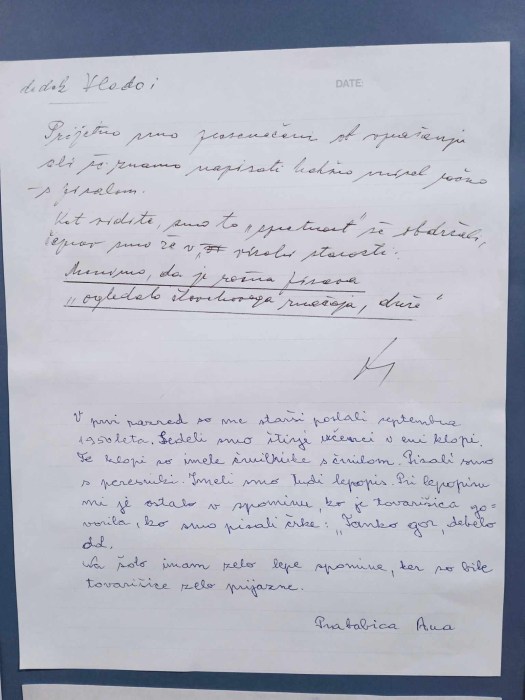 dedek Vlado i
DATE:
Prijetno smo presenečeni ob vprašanju
ali še znamo napisati kakšno misel ročno
- s pisalom.
Kot vidite, smo to "spretnost" še obdržali,
čeprav smo že v visoki starosti.
Menimo, da je ročna pisava
"ogledalo človekovega značaja, duše"
V prvi razred so me starši poslali septembra
1950 leta. Sedeli smo štirje učenci v eni klopi.
Te klopi so imele črnilnike s črnilom. Pisali smo
s peresniki. Imeli smo tudi lepopis. Pri lepopisu
mi je ostalo v spominu, ko je tovarišica go-
vorila, ko smo pisali črke: "Tanko gor, debelo
dol.
Na šolo imam zelo lepe spomine, ker so bile
tovarišice zelo prijazne.
Prababica Ana